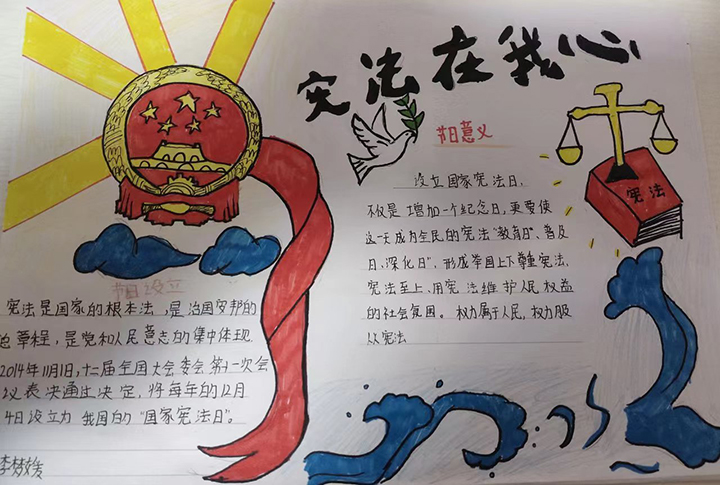 宪法在我心
节日意义
设立国家宪法日,
不仅是增加一个纪念日,更要使
这一天成为全民的宪法"教育日、普及
日、深化日",形成举国上下尊重宪法、
宪法至上、用宪法维护人民权益
的社会氛围。权力属于人民,权力服
从宪法
宪法
节日设立
宪法是国家的根本法,是治国安邦的
总章程,是党和人民意志的集中体现
2014年11月1日,十二届全国大会委会第一次会
议表决通过决定,将每年的12月
4日设立为我国的"国家宪法日"。
李梦媛